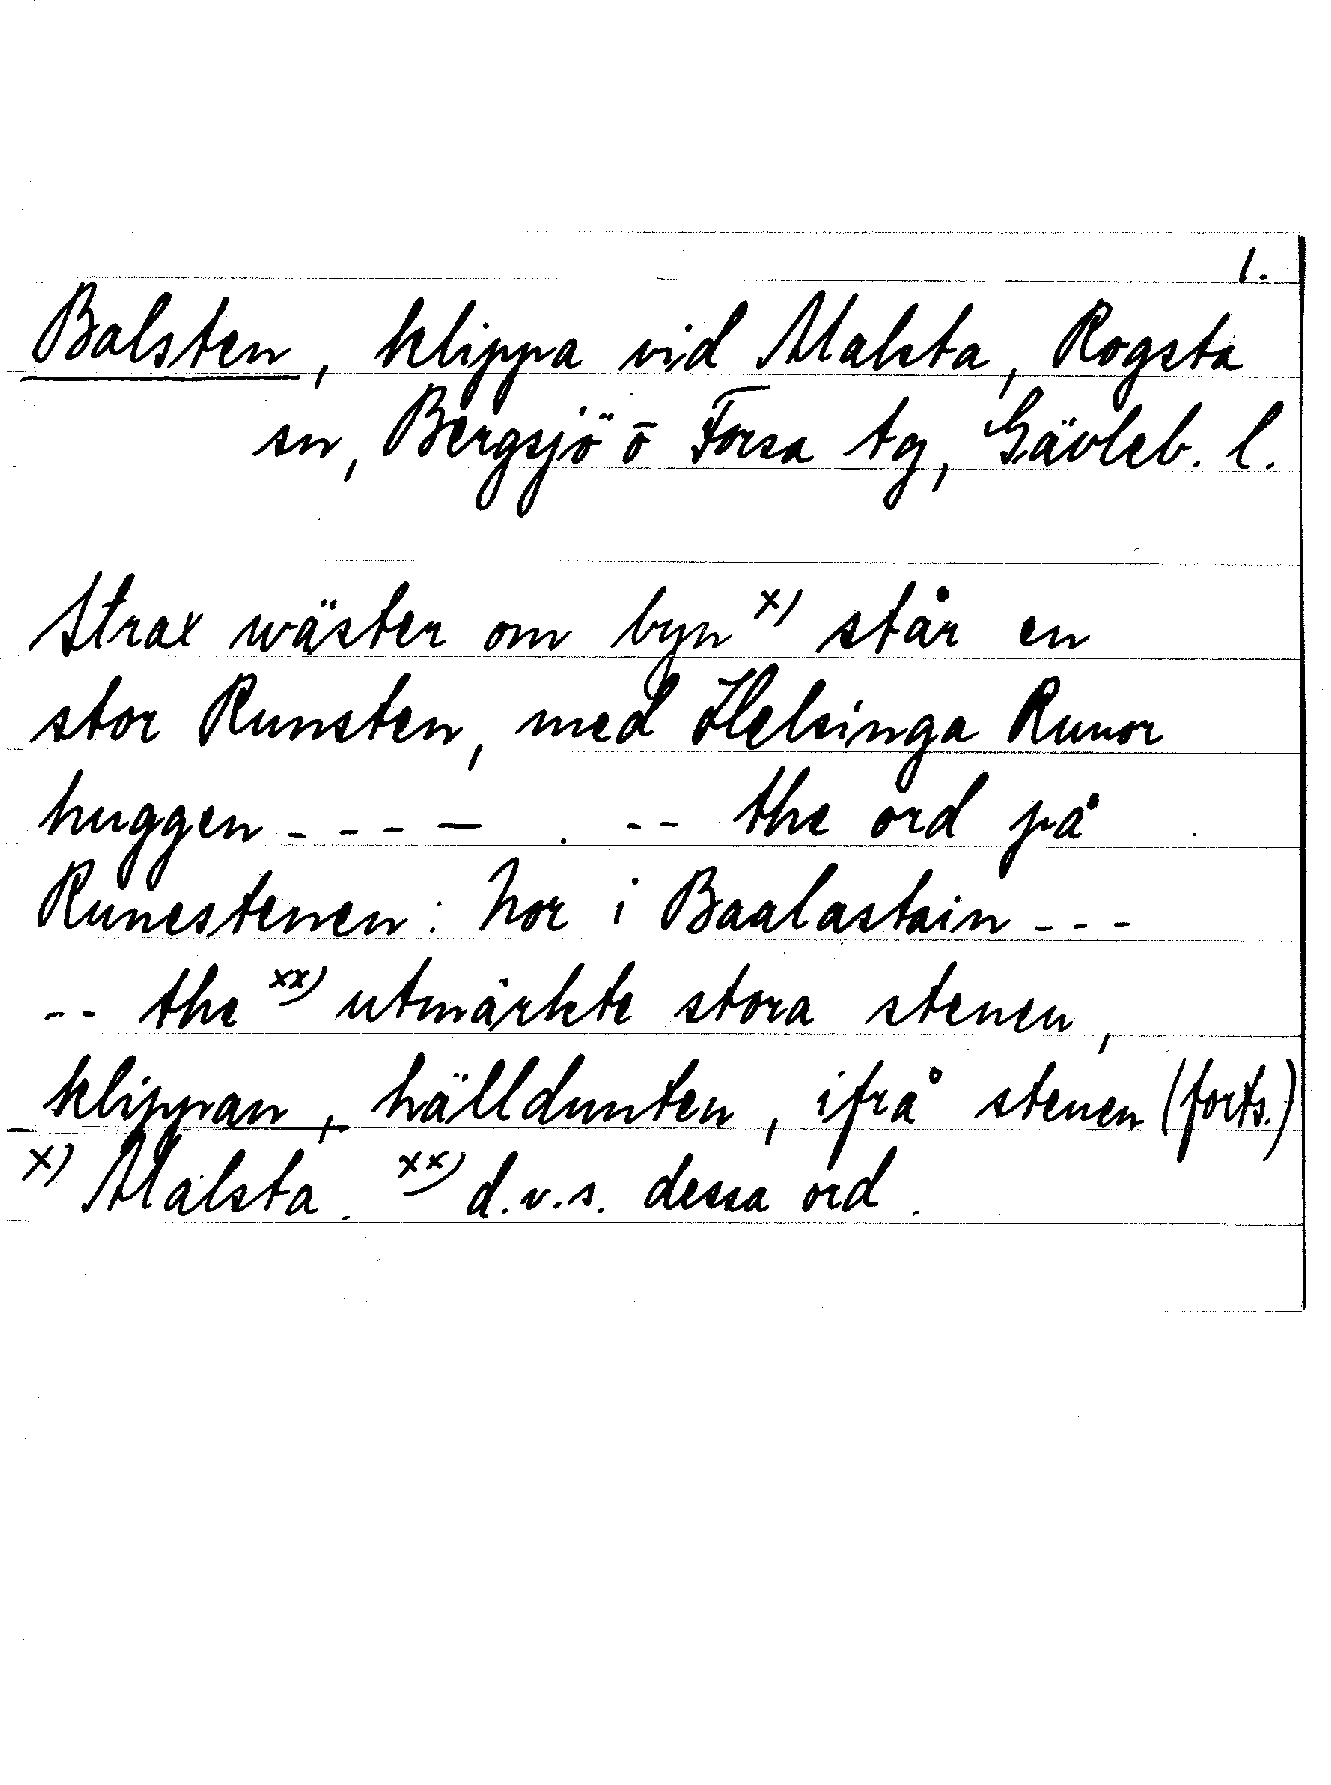 1.
Balsten, klippa vid Malsta, Rogsta
sn, Bergsjö o Forsa tg, Gävleb. l.
Strax wäster om byn x) står en
stor Runsten, med Helsinga Runor
huggen - - - — . - - the ord på
Runestenen: hor i Baalastain - - -
- - the xx) utmärkte stora stenen,
klippan, hälldunten, ifrå stenen (forts.)
x) Malsta. xx) d.v.s. dessa ord.